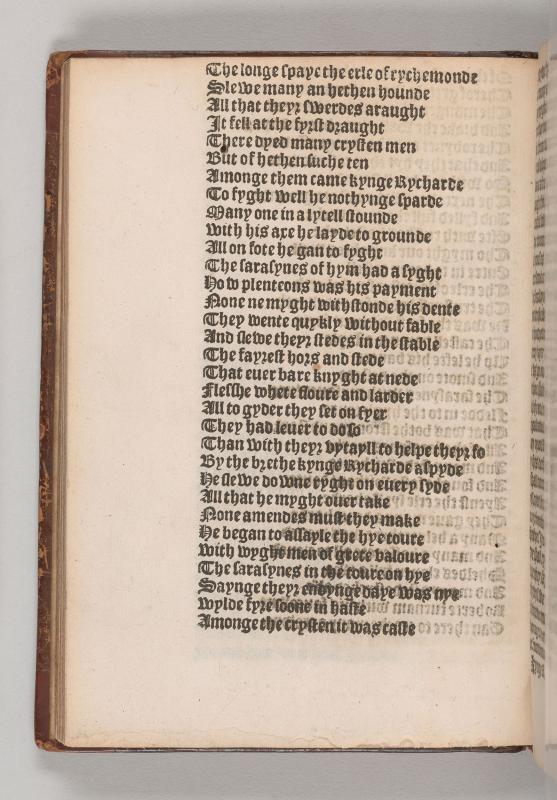 The longe spaye the erle of rychemonde
Slewe many an hethen hounde
All that theyr swerdes araught
It fell at the fyrst draught
There dyed many crysten men
But of hethen suche ten
Amonge them came kynge Rycharde
To fyght well he nothynge sparde
Many one in a lytell stounde
With his axe he layde to grounde
All on fote he gan to fyght
The sarasynes of hym had a syght
How plenteons was his payment
None ne myght withstonde his dente
They wente quykly without fable
And slewe theyr stedes in the stable
The fayrest hors and stede
That euer bare knyght at nede
Flesshe whete floure and larder
All to gyder they set on fyer
They had leuer to do so
Than with theyr vytayll to helpe theyr fo
By the brethe kynge Rycharde aspyde
He slewe downe ryght on euery syde
All that he myght ouer take
None amendes must they make
He began to assayle the hye toure
With wyght men of grete valoure
The sarasynes in the toure on hye
Saynge theyr endynge daye was nye
Wylde fyre soone in haste
Amonge the crysten it was caste